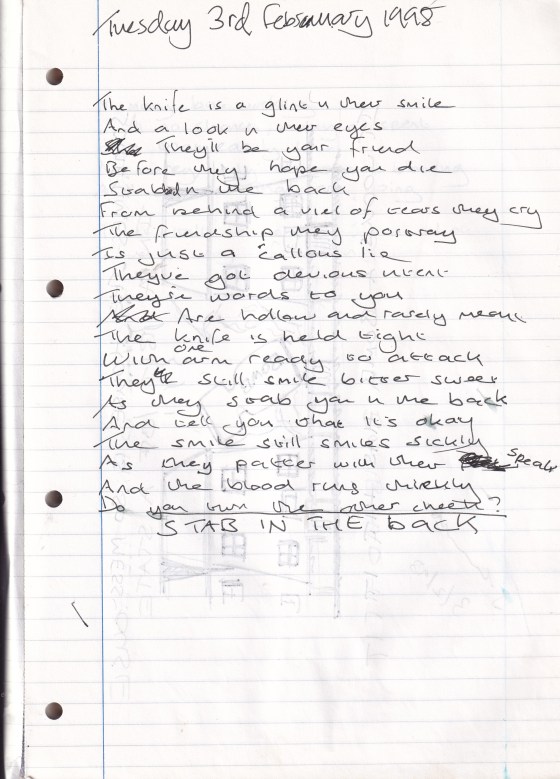 Tuesday 3rd February 1998
The knife is a glint n their smile
And a look n their eyes
They'll be your friend
Before they hope you die
Stabbed n the back
From behind a viel of tears they cry
The friendship they portray
Is just a callous lie
They've got devious ntent
They're words to you
Are hollow and rarely meant
The knife is held tight
With one arm ready to attack
They'll still smile bitter sweet
As they stab you n the back
And tell you that it's okay
The smile still smiles sickly
As they patter with their speak
And the blood runs thickly
Do you turn the other cheek?
STAB IN THE back